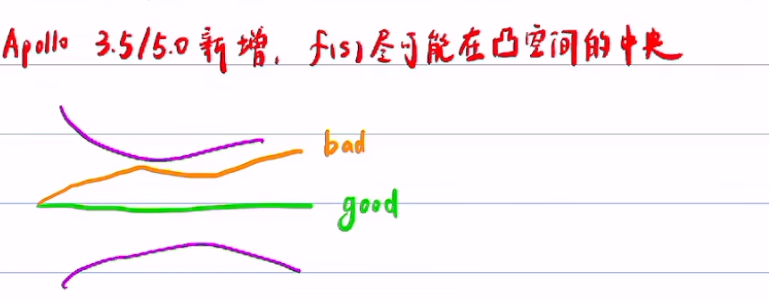 Apollo 3.5/5.0 新增, f(s)尽可能在凸空间的中央
bad
good